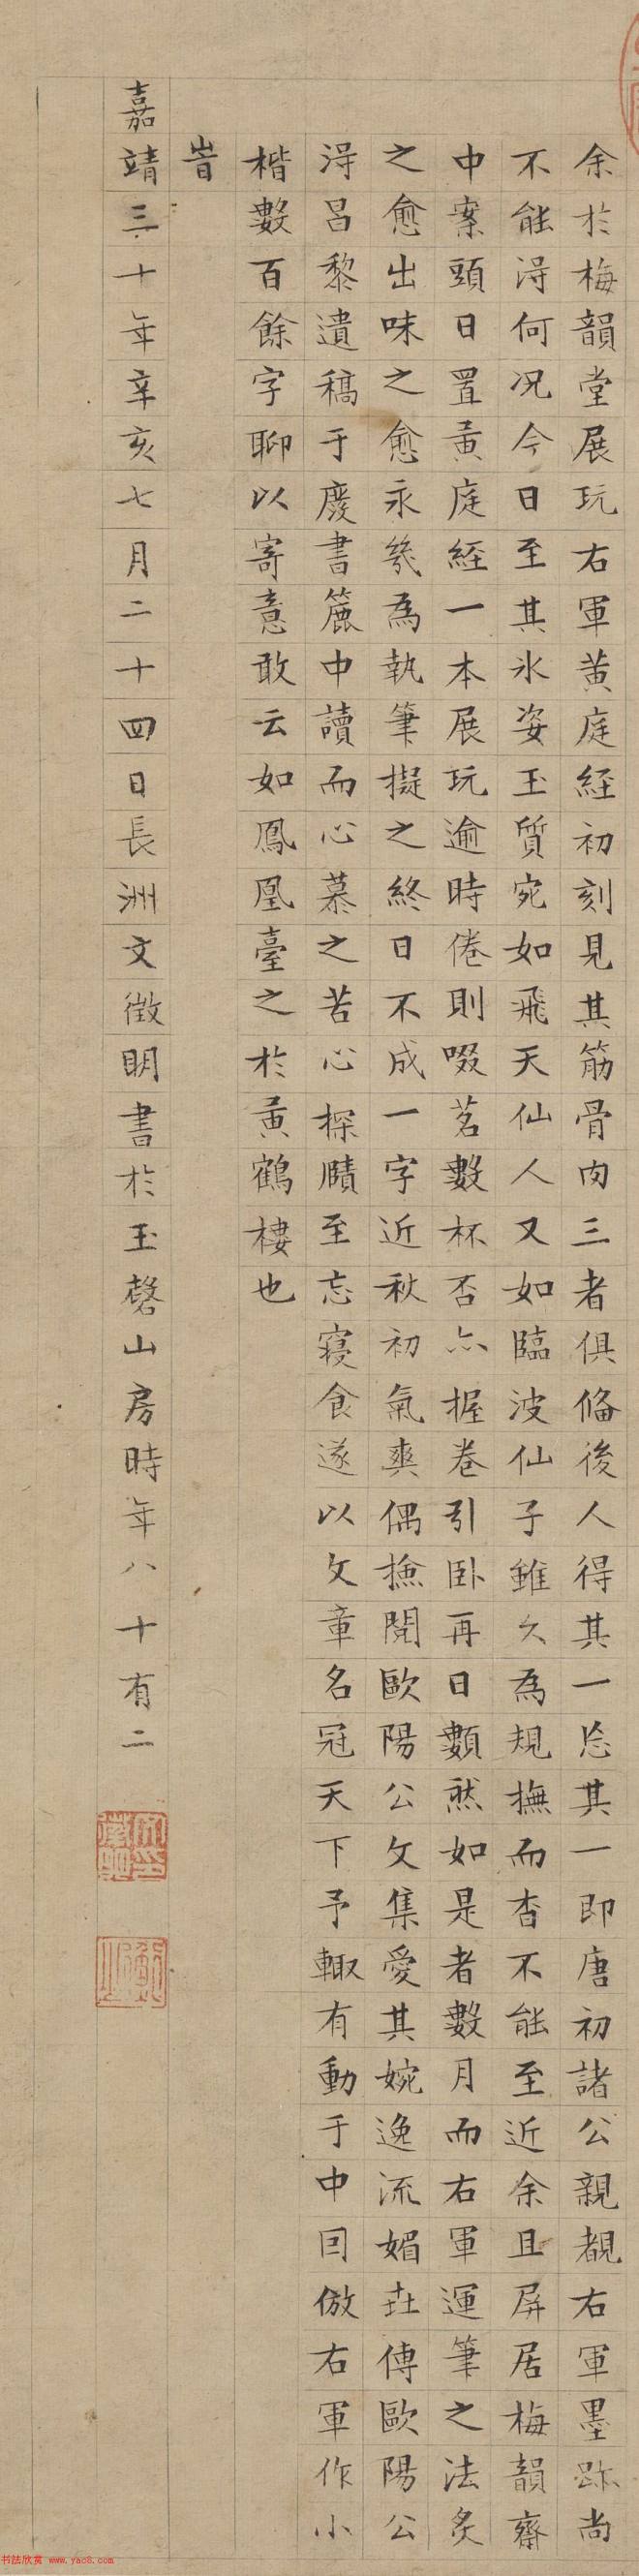 余於梅韻堂展玩右軍黃庭經初刻見其筋骨肉三者俱俻後人得其一忘其一即唐初諸公親覩右軍墨跡尚
不能淂何况今日至其氷姿玉質宛如飛天仙人又如臨波仙子雖久為規撫而杳不能至近余且屏居梅韻齋
中案頭日置黃庭經一本展玩逾時倦則啜茗數杯否亦握卷引卧再日顭然如是者數月而右軍運筆之法炙
之愈出味之愈永㡬為執筆擬之終日不成一字近秋初氣爽偶撿閱歐陽公文集愛其婉逸流媚丗傳歐陽公
淂昌黎遺稿于廢書簏中讀而心慕之苦心探賾至忘寢食遂以文章名冠天下予輙有動于中囙倣右軍作小
楷數百餘字聊以寄意敢云如鳳凰臺之於黃鶴樓也
旹
嘉靖三十年辛亥七月二十四日長洲文徵明書於玉磬山房時年八十有二
书法欣赏 www.yac8.com